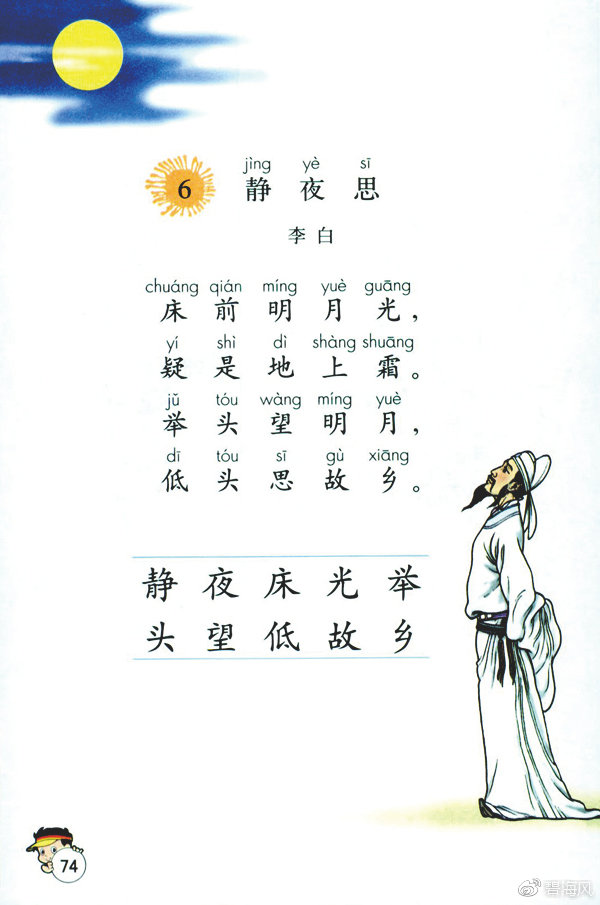 jìng yè sī
6 静夜思
李白
chuáng qián míng yuè guāng
床前明月光，
yí shì dì shàng shuāng
疑是地上霜。
jǔ tóu wàng míng yuè
举头望明月，
dī tóu sī gù xiāng
低头思故乡。
静夜床光举
头望低故乡
74
碧海风